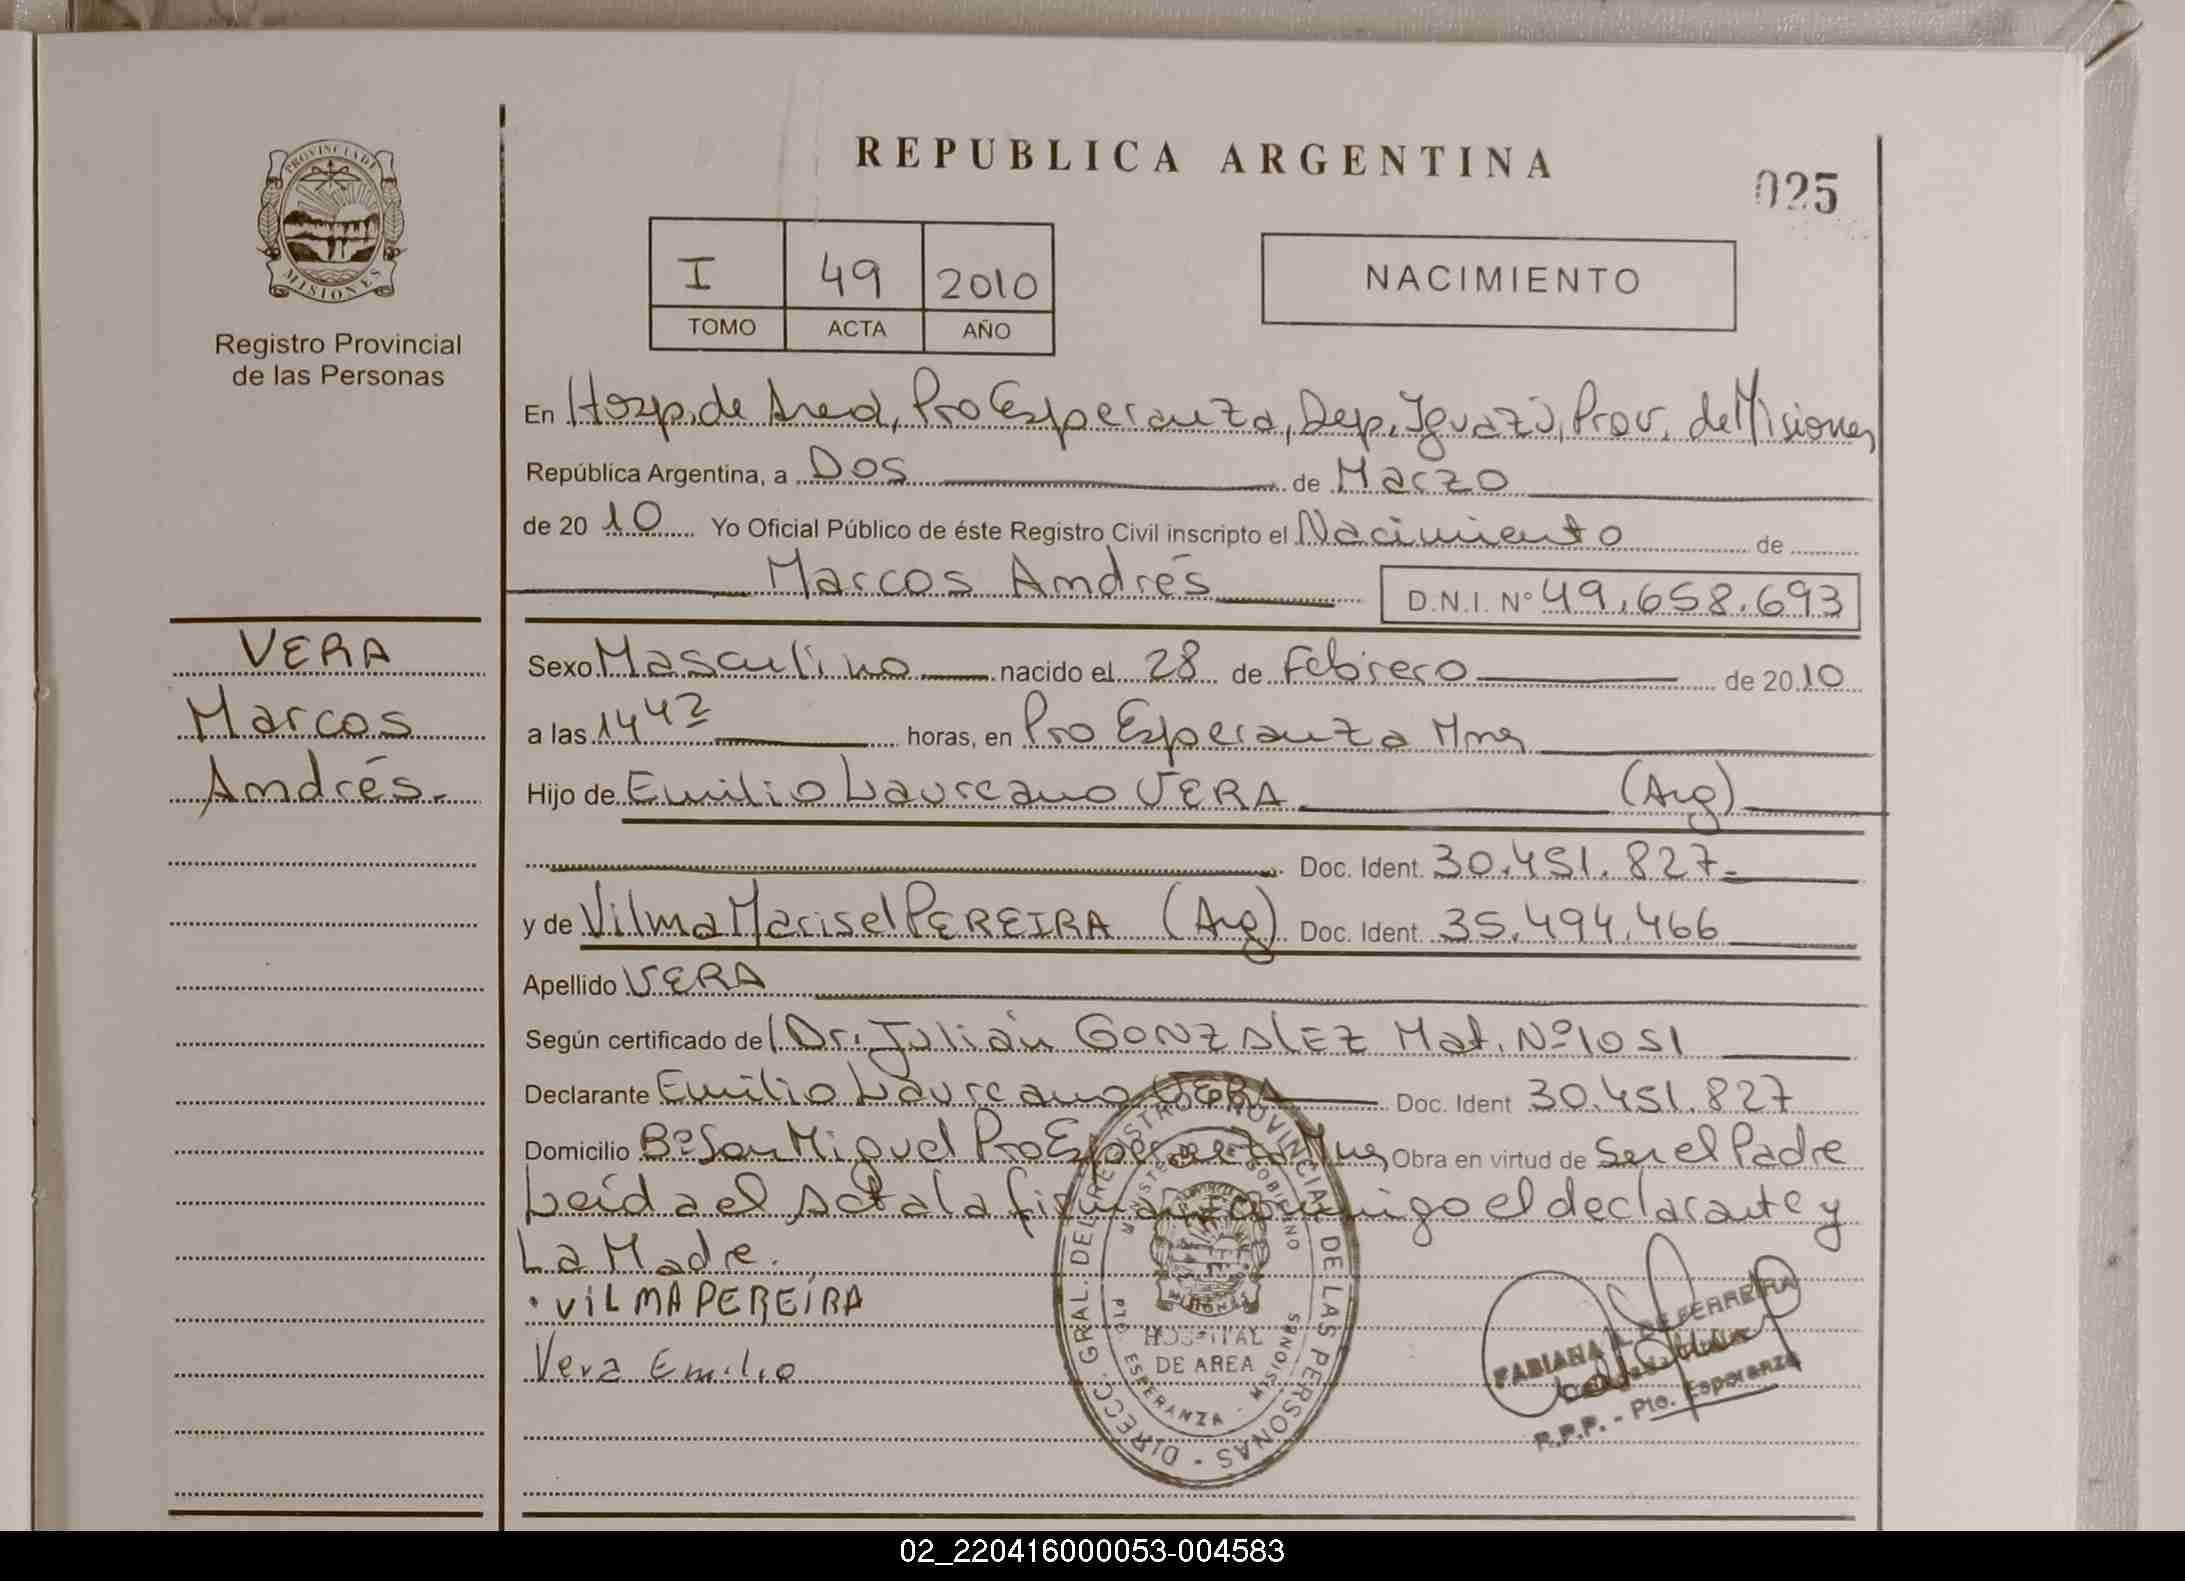 REPUBLICA ARGENTINA
025
PROVINCIA DE
MISIONES
Registro Provincial
de las Personas
I 49 2010
TOMO ACTA AÑO
NACIMIENTO
En Hosp. de Area, Pto Esperanza, Dep. Iguazú, Prov. de Misiones
República Argentina, a Dos de Marzo
de 20 10 Yo Oficial Público de éste Registro Civil inscripto el Nacimiento de
Marcos Andrés D.N.I. Nº 49.658.693
VERA
Marcos
Andrés.-
Sexo Masculino nacido el 28 de Febrero de 20 10
a las 14 42 horas, en Pto Esperanza Mnes
Hijo de Emilio Laureano VERA (Arg)
Doc. Ident. 30.451.827-
y de Vilma Marisel PEREIRA (Arg) Doc. Ident. 35.494.466
Apellido VERA
Según certificado de Dr. Julián GONZALEZ Mat. Nº 1051
Declarante Emilio Laureano VERA Doc. Ident 30.451.827
Domicilio Bº San Miguel Pto Esperanza Mnes Obra en virtud de Ser el Padre
Leída el Acta la firman conmigo el declarante y
La Madre.
VILMA PEREIRA
Vera Emilio
DIRECC. GRAL. DEL REGISTRO PROVINCIAL DE LAS PERSONAS
MINISTERIO DE GOBIERNO
MISIONES
HOSPITAL
DE AREA
PTO. ESPERANZA - MISIONES
FABIANA DE FERREIRA
R.P.P. - Pto. Esperanza
02_220416000053-004583